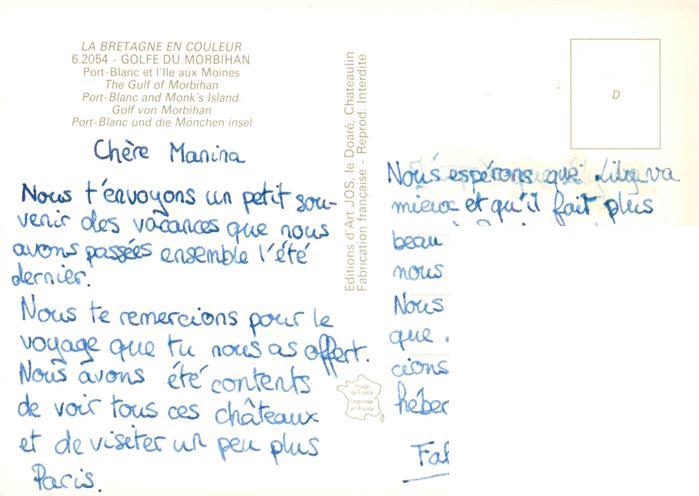 LA BRETAGNE EN COULEUR
6.2054 - GOLFE DU MORBIHAN
Port-Blanc et l'Ile aux Moines
The Gulf of Morbihan
Port-Blanc and Monk's Island.
Golf von Morbihan
Port-Blanc und die Mönchen insel
Chère Manina
Nous t'envoyons un petit sou-
venir des vacances que nous
avons passées ensemble l'été
dernier.
Nous te remercions pour le
voyage que tu nous as offert.
Nous avons été contents
de voir tous ces châteaux
et de visiter un peu plus
Paris.
Editions d'Art JOS, le Doaré, Chateaulin
Fabrication française - Reprod. Interdite
Image
de France
Imprimée
en France
D
Nous espérons que va
mieux et qu'il fait plus
beau
nous
Nous
que
cions
héber
Fab